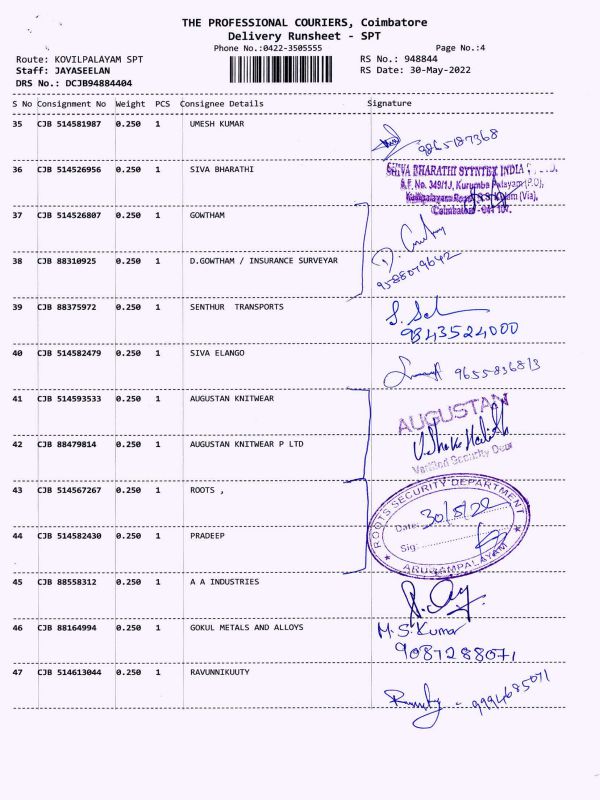 THE PROFESSIONAL COURIERS, Coimbatore
Delivery Runsheet - SPT
Phone No.:0422-3505555 Page No.:4
Route: KOVILPALAYAM SPT RS No.: 948844
Staff: JAYASEELAN RS Date: 30-May-2022
DRS No.: DCJB94884404
S No Consignment No Weight PCS Consignee Details Signature
35 CJB 514581987 0.250 1 UMESH KUMAR
9865187368
36 CJB 514526956 0.250 1 SIVA BHARATHI
SHIVA BHARATHI SYNTEX INDIA
S.F. No. 349/1J, Kurumba Palayam (P.O),
(Via),
Coimbatore - 641 107.
37 CJB 514526807 0.250 1 GOWTHAM
38 CJB 88310925 0.250 1 D.GOWTHAM / INSURANCE SURVEYAR
9588079642
39 CJB 88375972 0.250 1 SENTHUR TRANSPORTS
9843524000
40 CJB 514582479 0.250 1 SIVA ELANGO
9655836813
41 CJB 514593533 0.250 1 AUGUSTAN KNITWEAR
AUGUSTAN
42 CJB 88479814 0.250 1 AUGUSTAN KNITWEAR P LTD
Verified Security Dept
43 CJB 514567267 0.250 1 ROOTS ,
ROOTS SECURITY DEPARTMENT
Date: 30/5/22
44 CJB 514582430 0.250 1 PRADEEP
Sig:
ARUGAMPALAYAM
45 CJB 88558312 0.250 1 A A INDUSTRIES
46 CJB 88164994 0.250 1 GOKUL METALS AND ALLOYS
M.S.Kumar
9087288071
47 CJB 514613044 0.250 1 RAVUNNIKUUTY
9994685071